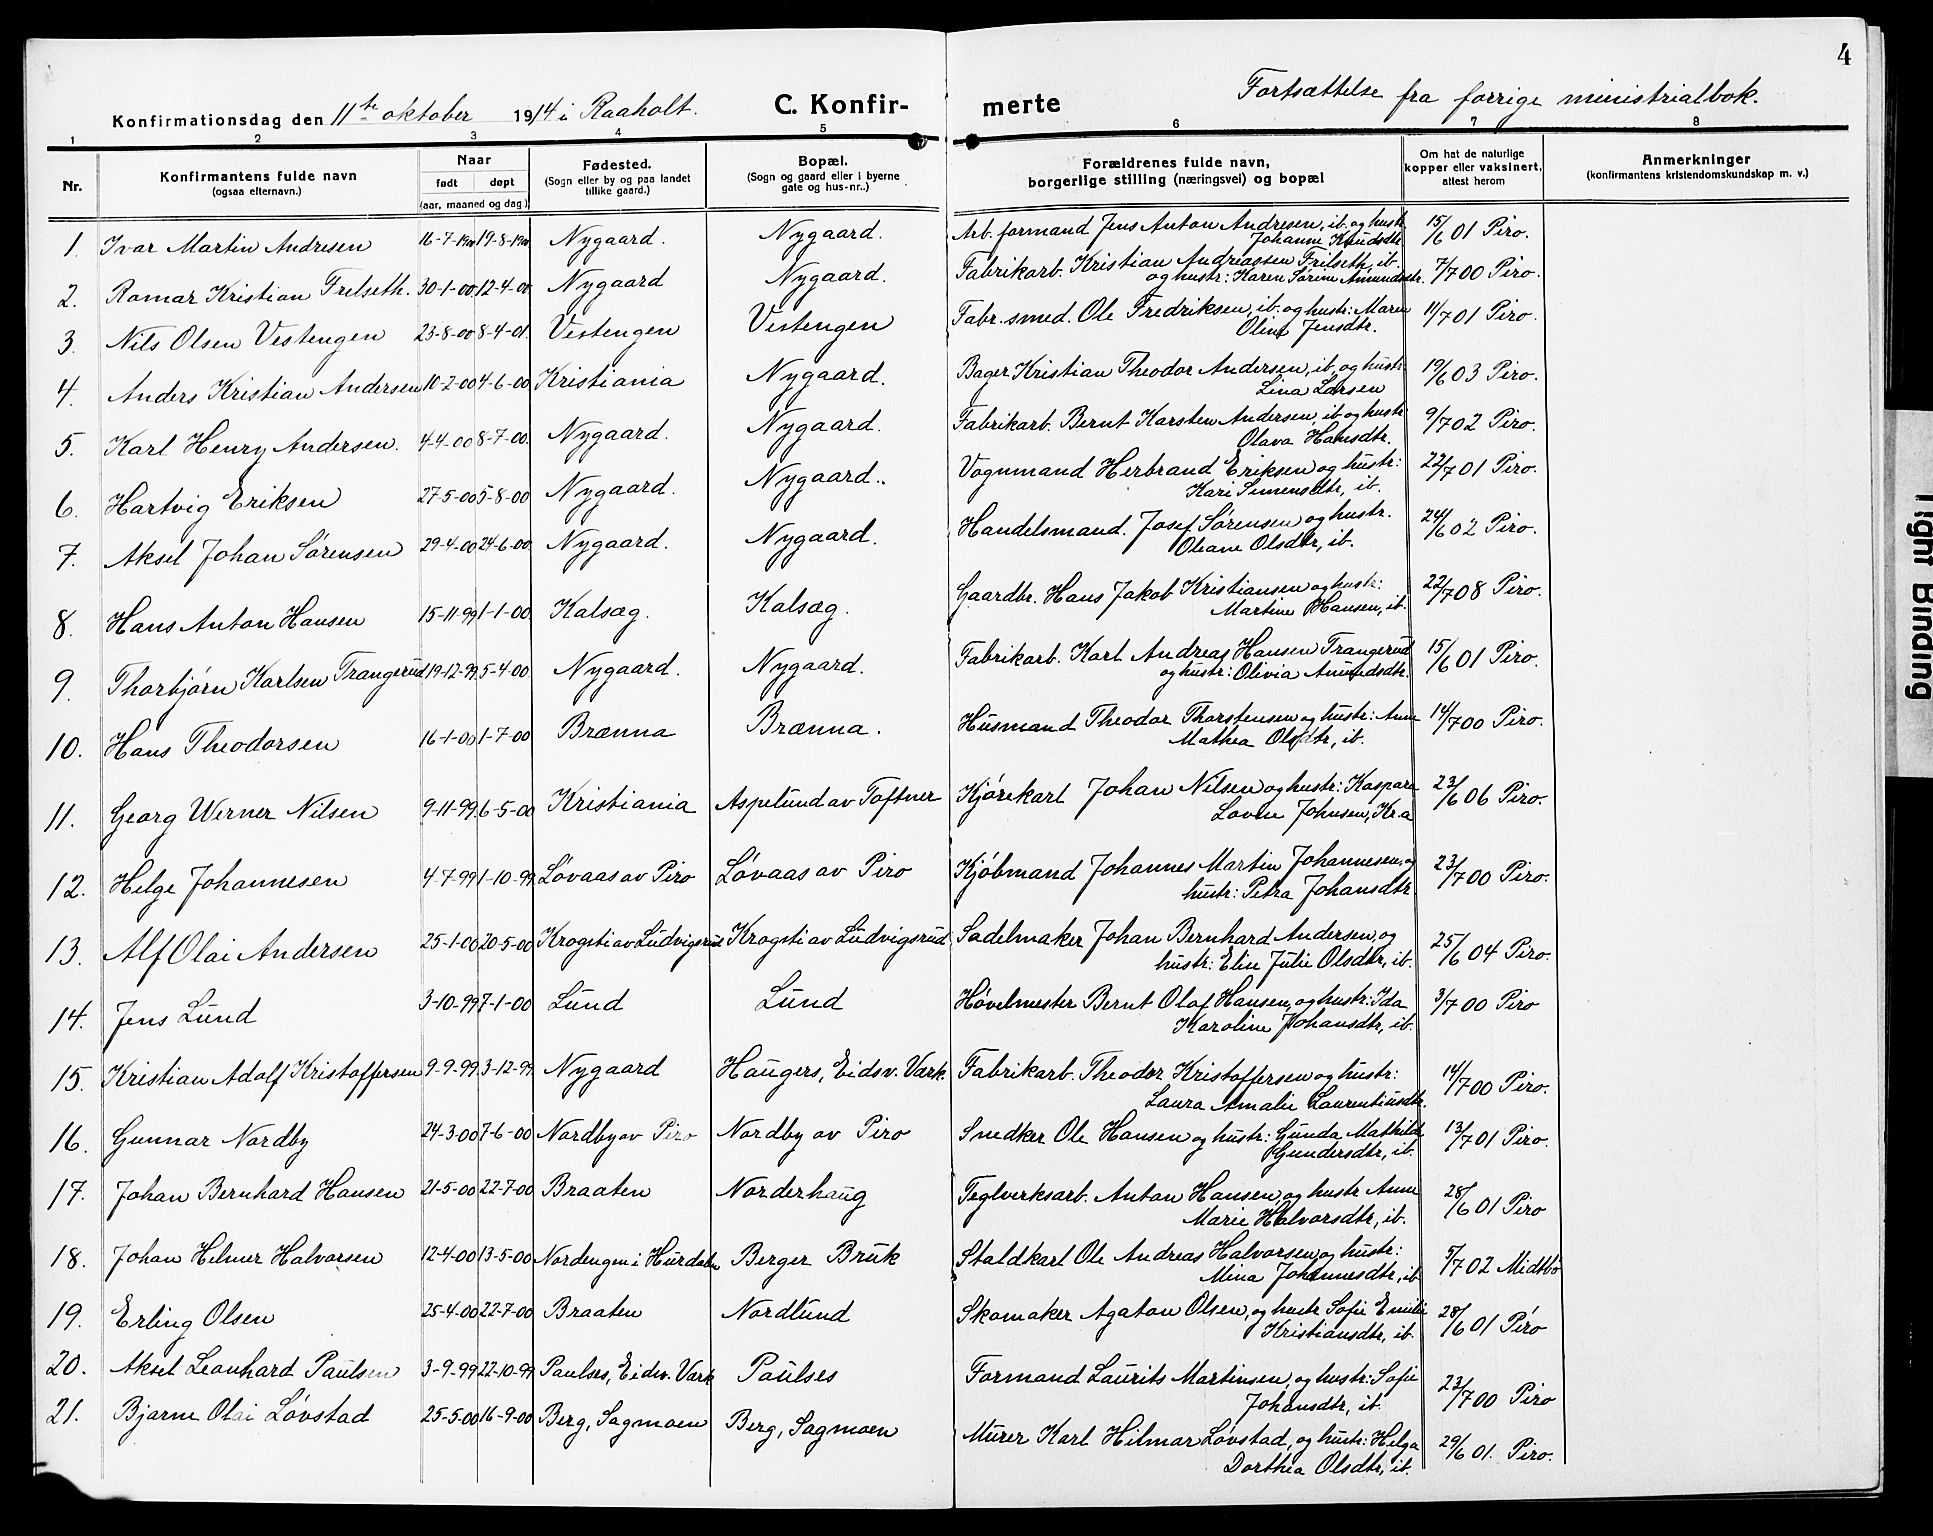 4
Fortsættelse fra forrige ministrialbok.
Konfirmationsdag den 11te oktober 1914 i Raaholt. C. Konfir- merte
1 2 3 4 5 6 7 8
Nr. Konfirmantens fulde navn (ogsaa efternavn.) Naar født døpt (aar, maaned og dag) Fødested. (Sogn eller by og paa landet tillike gaard.) Bopæl. (Sogn og gaard eller i byerne gate og hus-nr..) Forældrenes fulde navn, borgerlige stilling (næringsvei) og bopæl Om hat de naturlige kopper eller vaksinert, attest herom Anmerkninger (konfirmantens kristendomskundskap m. v.)
1. Ivar Martin Andresen 16-7-1900 19-8-1900 Nygaard. Nygaard. Arb. formand Jens Anton Andresen, ib. og hustr. 15/6 01 Piro.
Johanne Knudsdtr.
2. Romar Kristian Frilseth. 30-1-00 12-4-00 Nygaard Nygaard. Fabrikarb. Kristian Andreassen Frilseth, ib. 7/7 00 Piro.
og hustr: Karen Sørine Amundsdtr.
3. Nils Olsen Vestengen 23-8-00 8-4-01. Vestengen Vestengen Fabr. smed. Ole Fredriksen, ib. og hustr: Maren 11/7 01 Piro.
Oline Jensdtr.
4. Anders Kristian Andersen 10-2-00 4-6-00 Kristiania Nygaard. Bager Kristian Theodor Andersen, ib, og hustr. 19/6 03 Piro.
Lina Larsen
5. Karl Henry Andersen. 4-4-00 8-7-00. Nygaard. Nygaard. Fabrikarb. Bernt Karsten Andersen, ib. og hustr. 9/7 02 Piro.
Olava Hansdtr.
6. Hartvig Eriksen 27-5-00 5-8-00 Nygaard. Nygaard.. Vognmand Herbrand Eriksen og hustr: 22/7 01 Piro.
Kari Simensdtr, ib.
7. Aksel Johan Sørensen 29-4-00 24-6-00. Nygaard. Nygaard. Handelsmand. Josef Sørensen og hustr. 24/6 02 Piro.
Oleane Olsdtr, ib.
8. Hans Anton Hansen 15-11-99 1-1-00 Kalsæg. Kalsæg. Gaardbr. Hans Jakob Kristiansen og hustr: 22/7 08 Piro.
Martine Hansen, ib.
9. Thorbjørn Karlsen Trangerud 19-12-99. 5-4-00 Nygaard. Nygaard. Fabrikarb. Karl Andreas Hansen Trangerud 15/6 01 Piro.
og hustr: Olivia Amundsdtr.
10. Hans Theodorsen 16-1-00 1-7-00 Brænna Brænna. Husmand Theodor Thorstensen og hustr: Anne 14/7 00 Piro.
Mathea Olsdtr, ib.
11. Georg Werner Nilsen 9-11-99. 6-5-00 Kristiania Aspelund av Toftner Kjørekarl Johan Nilsen og hustr: Kaspara 23/6 06 Piro.
Lovise Johnsen, Kr.a
12. Helge Johannesen 4-7-99 1-10-99. Løvaas av Piro Løvaas av Piro Kjøbmand Johannes Martin Johannesen, og 23/7 00 Piro.
hustr: Petra Johansdtr.
13. Alf Olai Andersen 25-1-00 20-5-00 Krogsti av Ludvigsrud Krogsti av Ludvigsrud Sadelmaker Johan Bernhard Andersen, og 25/6 04 Piro.
hustr: Elise Julie Olsdtr, ib.
14. Jens Lund 3-10-99 7-1-00 Lund Lund Høvelmester Bernt Olaf Hansen, og hustr: Ida 3/7 00 Piro
Karoline Johansdtr, ib.
15. Kristian Adolf Kristoffersen 9-9-99. 3-12-99. Nygaard Haugers, Eidsv. Værk. Fabrikarb. Theodor Kristoffersen og hustr: 14/7 00 Piro.
Laura Amalie Laurentiusdtr.
16. Gunnar Nordby 24-3-00 7-6-00 Nordby av Piro Nordby av Piro Snedker Ole Hansen og hustr: Gunda Mathilde 13/7 01 Piro.
Gundersdtr, ib.
17. Johan Bernhard Hansen 21-5-00 22-7-00 Braaten Norderhaug Teglverksarb. Anton Hansen, og hustr Anne 28/6 01 Piro
Marie Halvorsdtr, ib.
18. Johan Helmer Halvorsen 12-4-00 13-5-00 Nordengen i Hurdalen Berger Bruk Staldkarl Ole Andreas Halvorsen, og hustr: 5/7 02 Midtbø
Mina Johannesdtr, ib
19. Erling Olsen 25-4-00 22-7-00 Braaten Nordlund Skomaker Agaton Olsen, og hustr Sofie Emilie 28/6 01 Piro
Kristiansdtr, ib.
20. Aksel Leonhard Paulsen 3-9-99 22-10-99 Paulses, Eidsv. Værk Paulses Formand Laurits Martinsen, og hustr: Sofie 23/7 00 Piro
Johansdtr, ib.
21. Bjarne Olai Løvstad 25-5-00 16-9-00 Berg, Sagmoen Berg, Sagmoen Murer Karl Hilmar Løvstad, og hustr: Helga 29/6 01. Piro.
Dorthea Olsdtr, ib.
Tight Binding